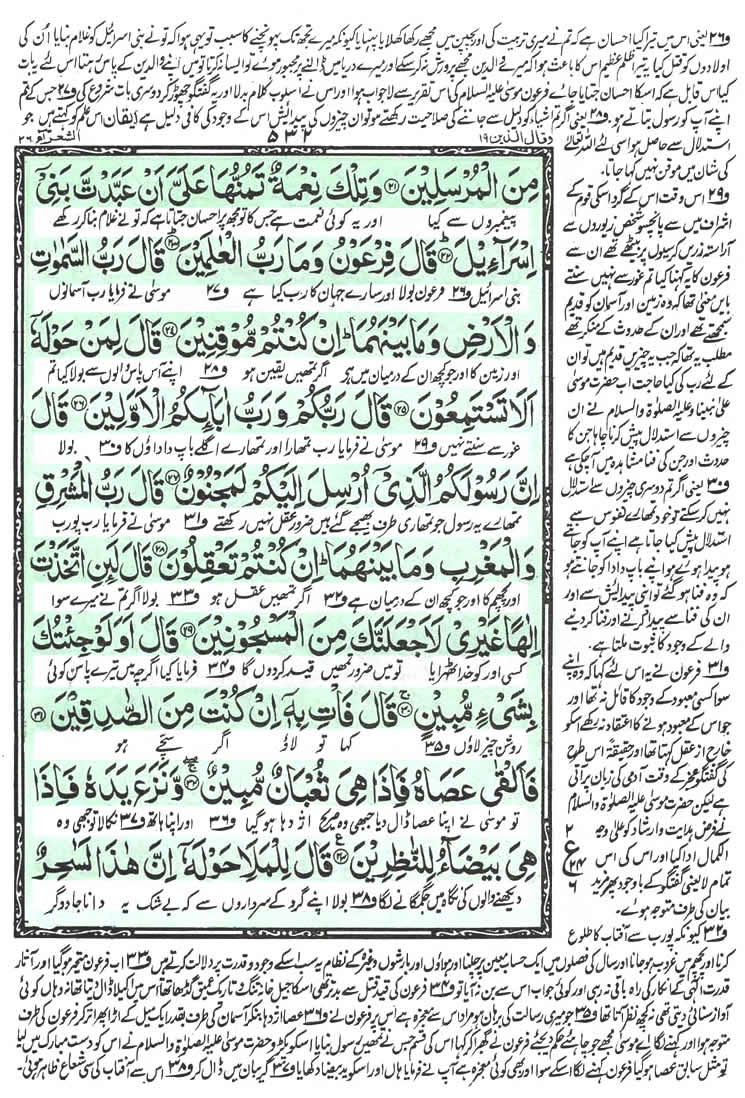 و۲۶ یعنی اس میں تیرا کیا احسان ہے کہ تم نے میری تربیت کی اور بچپن میں مجھے رکھا کھلایا پہنایا کیونکہ میرے تجھ تک پہونچنے کا سبب تو یہی ہوا کہ تو نے بنی اسرائیل کو غلام بنایا اُن کی
اولادوں کو قتل کیا یہ تیرا ظلمِ عظیم اس کا باعث ہوا کہ میرے والدین مجھے پرورش نہ کر سکے اور میرے دریا میں ڈالنے پر مجبور ہوئے تو ایسا نہ کرتا تو میں اپنے والدین کے پاس رہتا اس لئے یہ بات
کیا اس قابل ہے کہ اس کا احسان جتایا جائے فرعون موسیٰ علیہ السلام کی اس تقریر سے لاجواب ہوا اور اس نے اسلوب کلام بدلا اور یہ گفتگو چھوڑ کر دوسری بات شروع کی و۲۷ جس کے تم
اپنے آپ کو رسول بتاتے ہو۔ و۲۸ یعنی اگر تم اشیاء کو دلیل سے جاننے کی صلاحیت رکھتے ہو تو ان چیزوں کی پیدائش اس کے وجود کی کافی دلیل ہے ایقان اس علم کو کہتے ہیں جو
الشعراء ۲۶
۵۳۲
وقال الذین ۱۹
استدلال سے حاصل ہو اسی لئے اللہ تعالیٰ
کی شان میں موقن نہیں کہا جاتا۔
و۲۹ اس وقت اس کے گرد اس کی قوم کے
اشراف میں سے پانچسو شخص زیوروں سے
آراستہ زریں کرسیوں پر بیٹھے تھے ان سے
فرعون کا یہ کہنا کیا تم غور سے نہیں سنتے
بایں معنی تھا کہ وہ زمین اور آسمان کو قدیم
سمجھتے تھے اور ان کے حدوث کے منکر تھے
مطلب یہ تھا کہ جب یہ چیزیں قدیم ہیں تو ان
کے لئے رب کی کیا حاجت اب حضرت موسیٰ
علیٰ نبینا وعلیہ الصلوٰۃ والسلام نے ان
چیزوں سے استدلال پیش کرنا چاہا جن کا
حدوث اور جن کی فنا مشاہدہ میں آچکی ہے
و۳۰ یعنی اگر تم دوسری چیزوں سے استدلال
نہیں کر سکتے تو خود تمہارے نفوس سے
استدلال پیش کیا جاتا ہے اپنے آپ کو جانتے
ہو پیدا ہوئے ہو اپنے باپ دادا کو جانتے ہو
کہ وہ فنا ہو گئے تو اپنی پیدائش سے اور
ان کی فنا سے پیدا کرنے اور فنا کر دینے
والے کے وجود کا ثبوت ملتا ہے۔
و۳۱ فرعون نے یہ اس لئے کہا کہ وہ اپنے
سوا کسی معبود کے وجود کا قائل نہ تھا اور
جو اس کے معبود ہونے کا اعتقاد نہ رکھے اس کو
خارج از عقل کہتا تھا اور حقیقۃً اس طرح
کی گفتگو عجز کے وقت آدمی کی زبان پر آتی
ہے لیکن حضرت موسیٰ علیہ الصلوٰۃ والسلام
نے فرض ہدایت وارشاد کو علیٰ وجہ
الکمال ادا کیا اور اس کی اس
تمام لایعنی گفتگو کے باوجود پھر مزید
بیان کی طرف متوجہ ہوئے۔
و۳۲ کیونکہ پورب سے آفتاب کا طلوع
مِنَ الْمُرْسَلِيْنَ ۲۱ وَتِلْكَ نِعْمَةٌ تَمُنُّهَا عَلَيَّ اَنْ عَبَّدْتَّ بَنِيْٓ
پیغمبروں سے کیا اور یہ کوئی نعمت ہے جس کا تو مجھ پر احسان جتاتا ہے کہ تو نے غلام بنا کر رکھے
اِسْرَآءِيْلَ ۲۲ قَالَ فِرْعَوْنُ وَمَا رَبُّ الْعٰلَمِيْنَ ۲۳ قَالَ رَبُّ السَّمٰوٰتِ
بنی اسرائیل و۲۶ فرعون بولا اور سارے جہان کا رب کیا ہے و۲۷ موسیٰ نے فرمایا رب آسمانوں
وَالْاَرْضِ وَمَا بَيْنَهُمَا ؕ اِنْ كُنْتُمْ مُّوْقِنِيْنَ ۲۴ قَالَ لِمَنْ حَوْلَهٗٓ
اور زمین کا اور جو کچھ ان کے درمیان میں ہے اگر تمھیں یقین ہو و۲۸ اپنے آس پاس والوں سے بولا کیا تم
اَلَا تَسْتَمِعُوْنَ ۲۵ قَالَ رَبُّكُمْ وَرَبُّ اٰبَآئِكُمُ الْاَوَّلِيْنَ ۲۶ قَالَ
غور سے سنتے نہیں و۲۹ موسیٰ نے فرمایا رب تمھارا اور تمھارے اگلے باپ داداؤں کا و۳۰ بولا
اِنَّ رَسُوْلَكُمُ الَّذِيْٓ اُرْسِلَ اِلَيْكُمْ لَمَجْنُوْنٌ ۲۷ قَالَ رَبُّ الْمَشْرِقِ
تمھارے یہ رسول جو تمھاری طرف بھیجے گئے ہیں ضرور عقل نہیں رکھتے و۳۱ موسیٰ نے فرمایا رب پورب
وَالْمَغْرِبِ وَمَا بَيْنَهُمَا ؕ اِنْ كُنْتُمْ تَعْقِلُوْنَ ۲۸ قَالَ لَئِنِ اتَّخَذْتَ
اور پچھم کا اور جو کچھ ان کے درمیان ہے و۳۲ اگر تمھیں عقل ہو و۳۳ بولا اگر تم نے میرے سوا
اِلٰهًا غَيْرِيْ لَاَجْعَلَنَّكَ مِنَ الْمَسْجُوْنِيْنَ ۲۹ قَالَ اَوَلَوْ جِئْتُكَ
کسی اور کو خدا ٹھہرایا تو میں ضرور تمھیں قید کر دوں گا و۳۴ فرمایا کیا اگرچہ میں تیرے پاس کوئی
بِشَيْءٍ مُّبِيْنٍ ۳۰ قَالَ فَاْتِ بِهٖٓ اِنْ كُنْتَ مِنَ الصّٰدِقِيْنَ ۳۱
روشن چیز لاؤں و۳۵ کہا تو لاؤ اگر سچے ہو
فَاَلْقٰى عَصَاهُ فَاِذَا هِيَ ثُعْبَانٌ مُّبِيْنٌ ۳۲ وَّنَزَعَ يَدَهٗ فَاِذَا
تو موسیٰ نے اپنا عصا ڈال دیا جبھی وہ صریح اژدہا ہو گیا و۳۶ اور اپنا ہاتھ و۳۷ نکالا تو جبھی وہ
هِيَ بَيْضَآءُ لِلنّٰظِرِيْنَ ۳۳ قَالَ لِلْمَلَاِ حَوْلَهٗٓ اِنَّ هٰذَا لَسٰحِرٌ
دیکھنے والوں کی نگاہ میں جگمگانے لگا و۳۸ بولا اپنے گرد کے سرداروں سے کہ بے شک یہ دانا جادوگر
۲
ع
۲۴
۶
کرنا اور پچھم میں غروب ہو جانا اور سال کی فصلوں میں ایک حساب معین پر چلنا اور ہواؤں اور بارشوں وغیرہ کے نظام یہ سب اس کے وجود و قدرت پر دلالت کرتے ہیں و۳۳ اب فرعون متحیر ہو گیا اور آثار
قدرتِ الٰہی کے انکار کی راہ باقی نہ رہی اور کوئی جواب اس سے بن نہ آیا تو و۳۴ فرعون کی قید قتل سے بدتر تھی اس کا جیل خانہ تنگ تاریک عمیق گڑھا تھا اس میں اکیلا ڈال دیتا تھا نہ وہاں کوئی
آواز سنائی دیتی تھی نہ کچھ نظر آتا تھا و۳۵ جو میری رسالت کی برہان ہو مراد اس سے معجزہ ہے اس پر فرعون نے و۳۶ عصا اژدہا بنکر آسمان کی طرف بقدر ایک میل کے اڑا پھر اتر کر فرعون کی طرف
متوجہ ہوا اور کہنے لگا اے موسیٰ مجھے جو چاہئے حکم دیجئے فرعون نے گھبرا کر کہا اس کی قسم جس نے تمھیں رسول بنایا اس کو پکڑو حضرت موسیٰ علیہ الصلوٰۃ والسلام نے اس کو دست مبارک میں لیا
تو مثل سابق عصا ہو گیا فرعون کہنے لگا اس کے سوا اور بھی کوئی معجزہ ہے آپ نے فرمایا ہاں اور اس کو ید بیضا دکھایا و۳۷ گریبان میں ڈال کر و۳۸ اس سے آفتاب کی سی شعاع ظاہر ہوئی۔